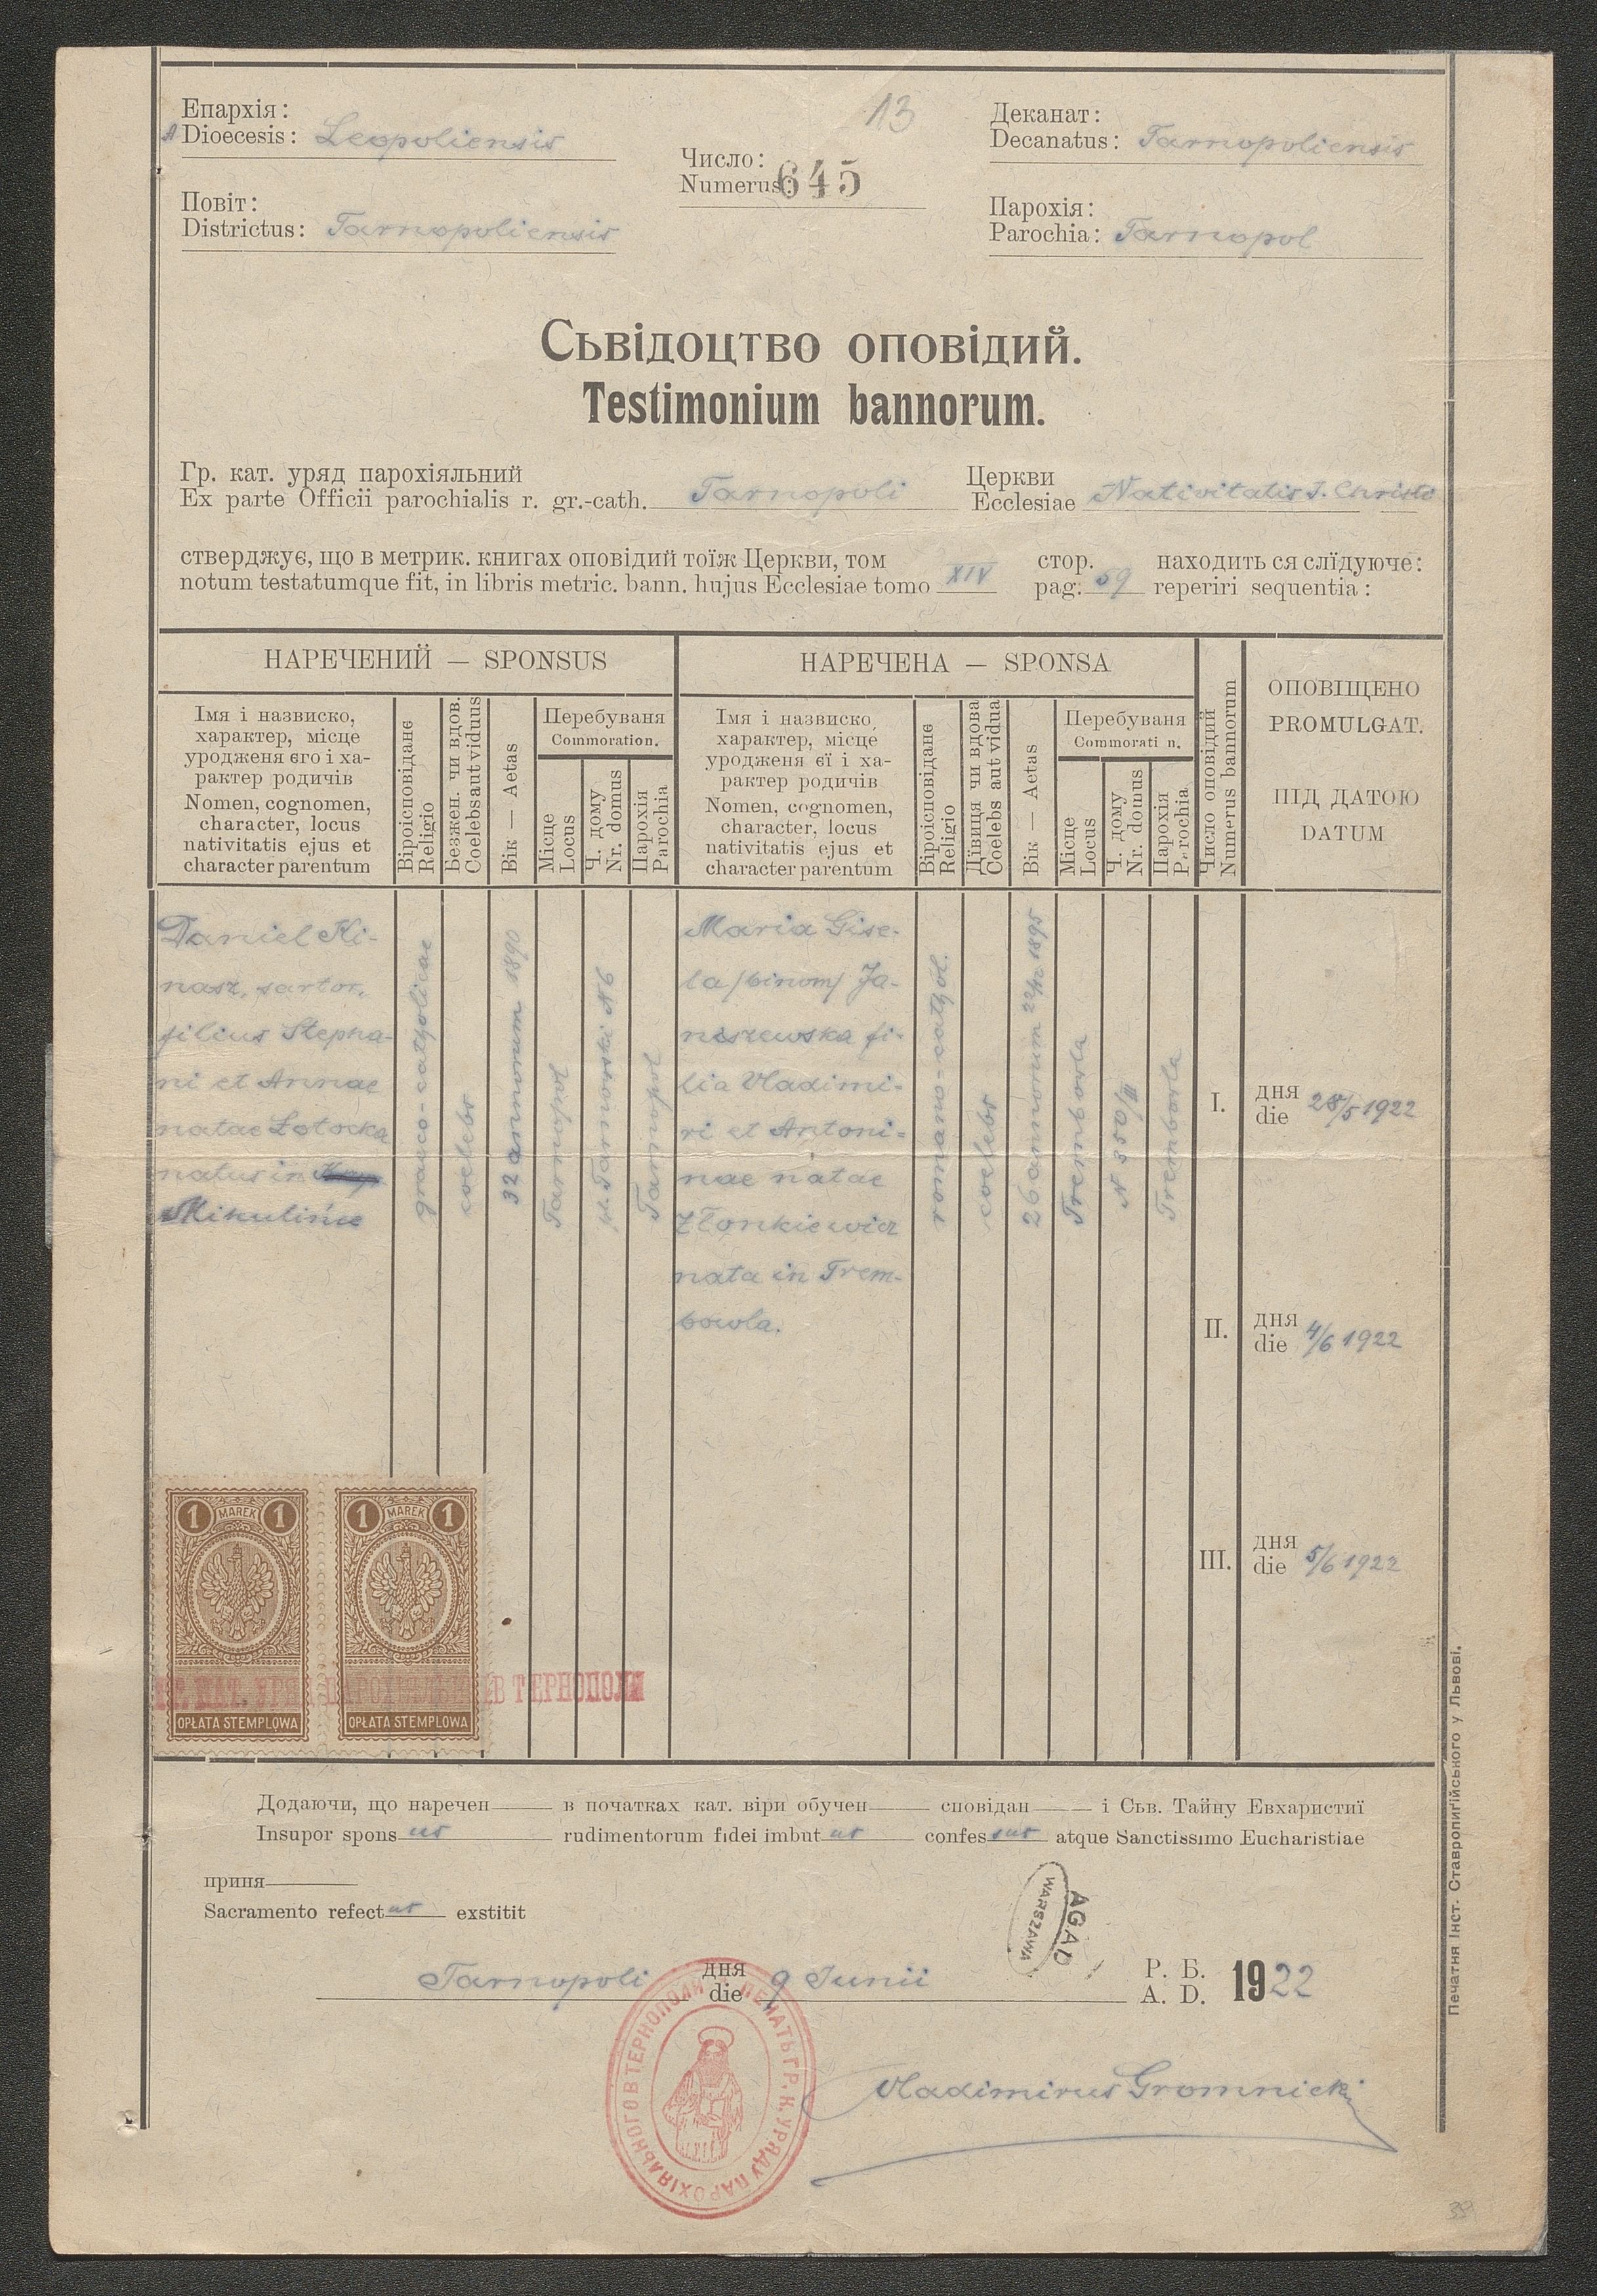 13
Епархія:
Dioecesis: Leopoliensis
Число:
Numerus: 645
Деканат:
Decanatus: Tarnopoliensis
Повіт:
Districtus: Tarnopoliensis
Парохія:
Parochia: Tarnopol
Сьвідоцтво оповідий.
Testimonium bannorum.
Гр. кат. уряд парохіяльний Церкви
Ex parte Officii parochialis r. gr.-cath. Tarnopoli Ecclesiae Nativitatis J. Christi
стверджує, що в метрик. книгах оповідий тоїж Церкви, том стор. находить ся слїдуюче:
notum testatumque fit, in libris metric. bann. hujus Ecclesiae tomo XIV pag. 59 reperiri sequentia:
НАРЕЧЕНИЙ — SPONSUS
Імя і назвиско,
характер, місце
уродженя єго і ха-
рактер родичів
Nomen, cognomen,
character, locus
nativitatis ejus et
character parentum
Віроісповіданє
Religio
Безжен. чи вдов.
Coelebs aut viduus
Вік — Aetas
Перебуваня
Commoration.
Місце
Locus
Ч. дому
Nr. domus
Парохія
Parochia
НАРЕЧЕНА — SPONSA
Імя і назвиско,
характер, місце
уродженя єї і ха-
рактер родичів
Nomen, cognomen,
character, locus
nativitatis ejus et
character parentum
Віроісповіданє
Religio
Дївиця чи вдова
Coelebs aut vidua
Вік — Aetas
Перебуваня
Commorati n.
Місце
Locus
Ч. дому
Nr. domus
Парохія
Parochia
Число оповідий
Numerus bannorum
ОПОВІЩЕНО
PROMULGAT.
ПІД ДАТОЮ
DATUM
Daniel Ki-
nasz, sartor,
filius Stepha-
ni et Annae
natae Łotocka
natus in
Mikulińce
graeco-catholicae
coelebs
32 annorum 1890
Tarnopol
pl. Tarnowski N6
Tarnopol
Maria Gise-
la /binom/ Ja-
niszewska fi-
lia Vladimi-
ri et Antoni-
nae natae
Złonkiewicz
nata in Trem-
bowla.
romano-cathol.
coelebs
26 annorum 1895
Trembowla
N 350/II
Trembowla
I. дня
die 28/5 1922
II. дня
die 4/6 1922
III. дня
die 5/6 1922
1 MAREK 1
OPŁATA STEMPLOWA
1 MAREK 1
OPŁATA STEMPLOWA
ГР. КАТ. УРЯД ПАРОХІЯЛЬНИЙ В ТЕРНОПОЛИ
Додаючи, що наречен в початках кат. віри обучен сповідан і Сьв. Тайну Евхаристиї
Insupor spons us rudimentorum fidei imbut us confes sus atque Sanctissimo Eucharistiae
приня
Sacramento refect us exstitit
AGAD
WARSZAWA
Tarnopoli дня
die 9 Junii Р. Б.
A. D. 1922
ПЕЧАТЬ ГР. К. УРЯДУ ПАРОХІЯЛЬНОГО В ТЕРНОПОЛИ
Vladimirus Gromnicki
Печатня Інст. Ставропигійського у Львові.
39